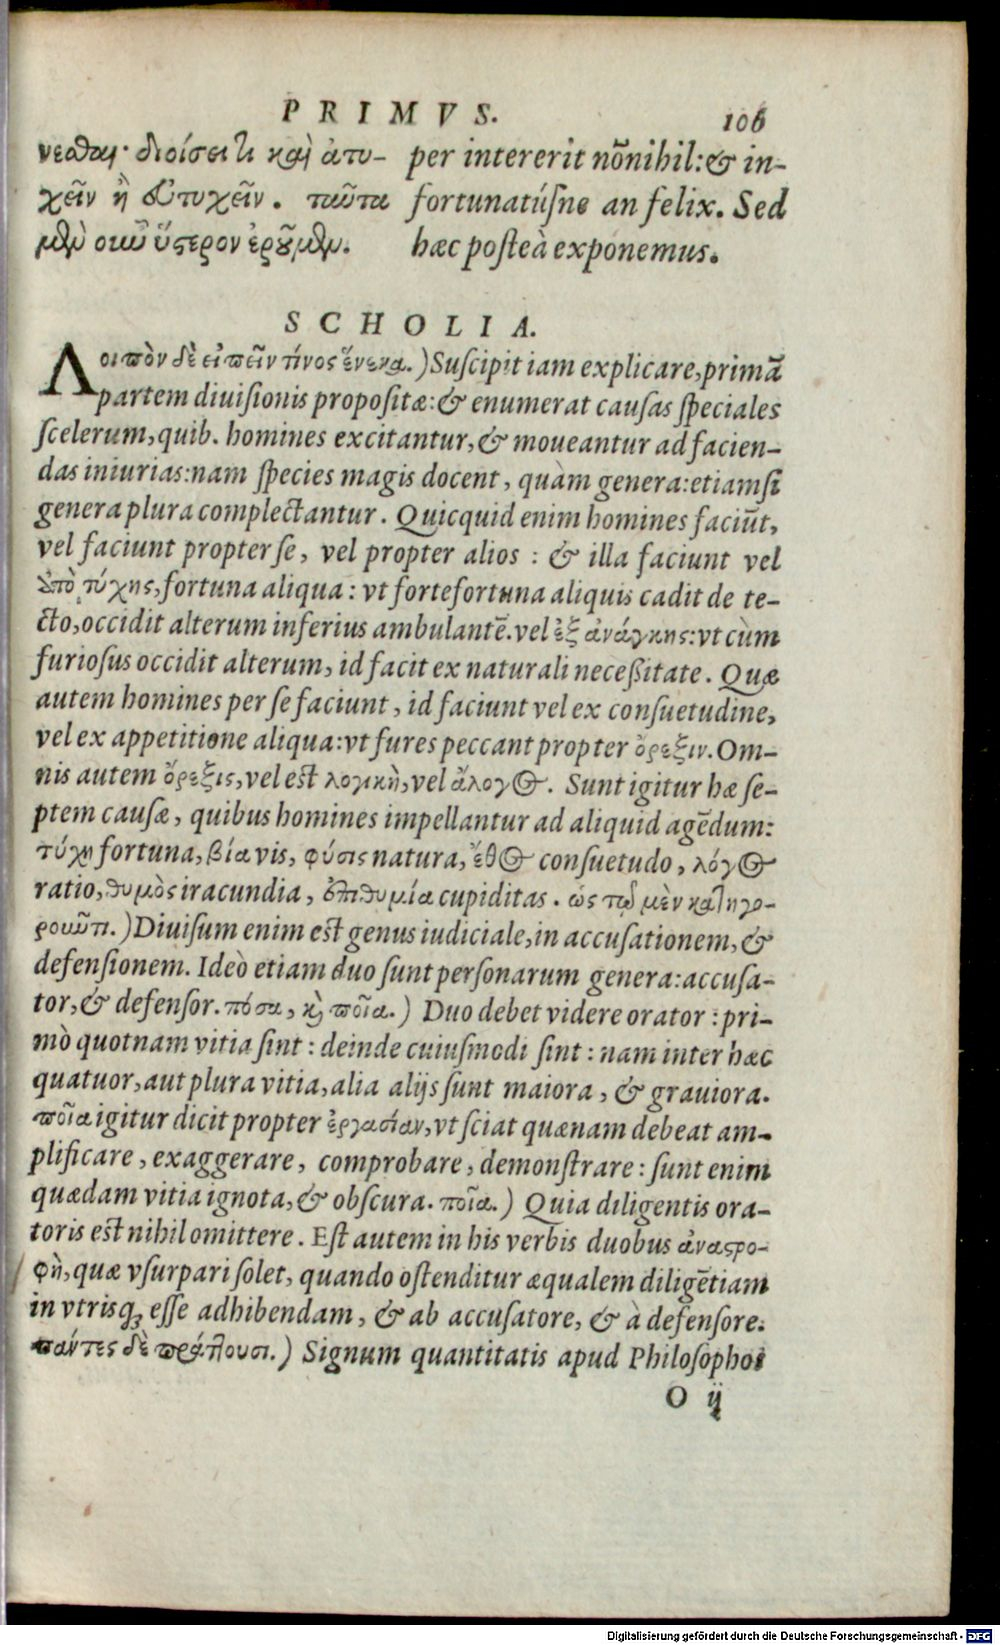 PRIMVS.
106
νεσθαι· διοίσει τι καὶ ἀτυ-
χεῖν ἢ εὐτυχεῖν. ταῦτα
μὲν οὖν ὕστερον ἐροῦμεν.
per intererit nōnihil:& in-
fortunatúſne an felix. Sed
hæc poſteà exponemus.
SCHOLIA.
Λοιπὸν δὲ εἰπεῖν τίνος ἕνεκα.) Suſcipit iam explicare, primā
partem diuiſionis propoſitæ:& enumerat cauſas ſpeciales
ſcelerum, quib. homines excitantur, & moueantur ad facien-
das iniurias: nam ſpecies magis docent, quàm genera: etiamſi
genera plura complectantur. Quicquid enim homines faciūt,
vel faciunt propter ſe, vel propter alios : & illa faciunt vel
ἀπὸ τύχης, fortuna aliqua : vt fortefortuna aliquis cadit de te-
cto, occidit alterum inferius ambulantē. vel ἐξ ἀνάγκης: vt cùm
furioſus occidit alterum, id facit ex naturali neceßitate. Quæ
autem homines per ſe faciunt, id faciunt vel ex conſuetudine,
vel ex appetitione aliqua: vt fures peccant propter ὄρεξιν. Om-
nis autem ὄρεξις, vel est λογικὴ, vel ἄλογος. Sunt igitur hæ ſe-
ptem cauſæ, quibus homines impellantur ad aliquid agēdum:
τύχη fortuna, βία vis, φύσις natura, ἔθος conſuetudo, λόγος
ratio, θυμὸς iracundia, ἐπιθυμία cupiditas. ὡς τῷ μὲν κατηγο-
ροῦντι.) Diuiſum enim est genus iudiciale, in accuſationem, &
defenſionem. Ideò etiam duo ſunt perſonarum genera: accuſa-
tor, & defenſor. πόσα, καὶ ποῖα.) Duo debet videre orator : pri-
mò quotnam vitia ſint : deinde cuiuſmodi ſint : nam inter hæc
quatuor, aut plura vitia, alia alijs ſunt maiora, & grauiora.
ποῖα igitur dicit propter ἐργασίαν, vt ſciat quænam debeat am-
plificare, exaggerare, comprobare, demonſtrare : ſunt enim
quædam vitia ignota, & obſcura. ποῖα.) Quia diligentis ora-
toris est nihil omittere. Eſt autem in his verbis duobus ἀναστρο-
φὴ, quæ vſurpari ſolet, quando oſtenditur æqualem diligētiam
in vtrisq; eſſe adhibendam, & ab accuſatore, & à defenſore.
πάντες δὲ πράττουσι.) Signum quantitatis apud Philoſophos
O ij
Digitalisierung gefördert durch die Deutsche Forschungsgemeinschaft - DFG